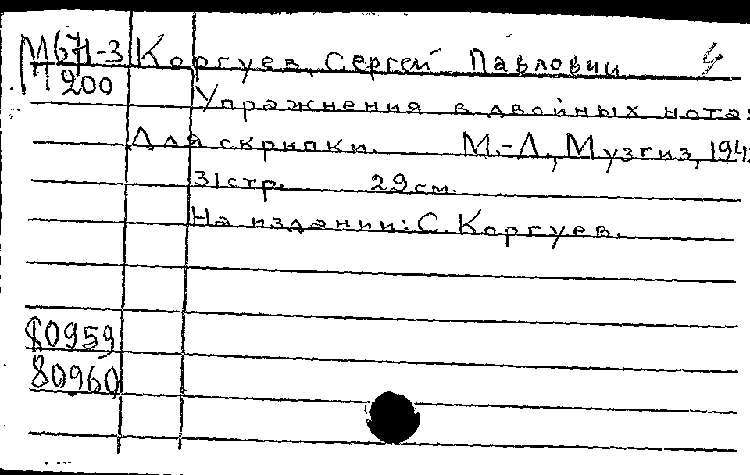 М671-3 Коргуев, Сергей Павлович
М 200
Упражнения в двойных нотах
Для скрипки. М.-Л., Музгиз, 194
31 стр. 29 см.
На издании: С. Коргуев.
80959
80960